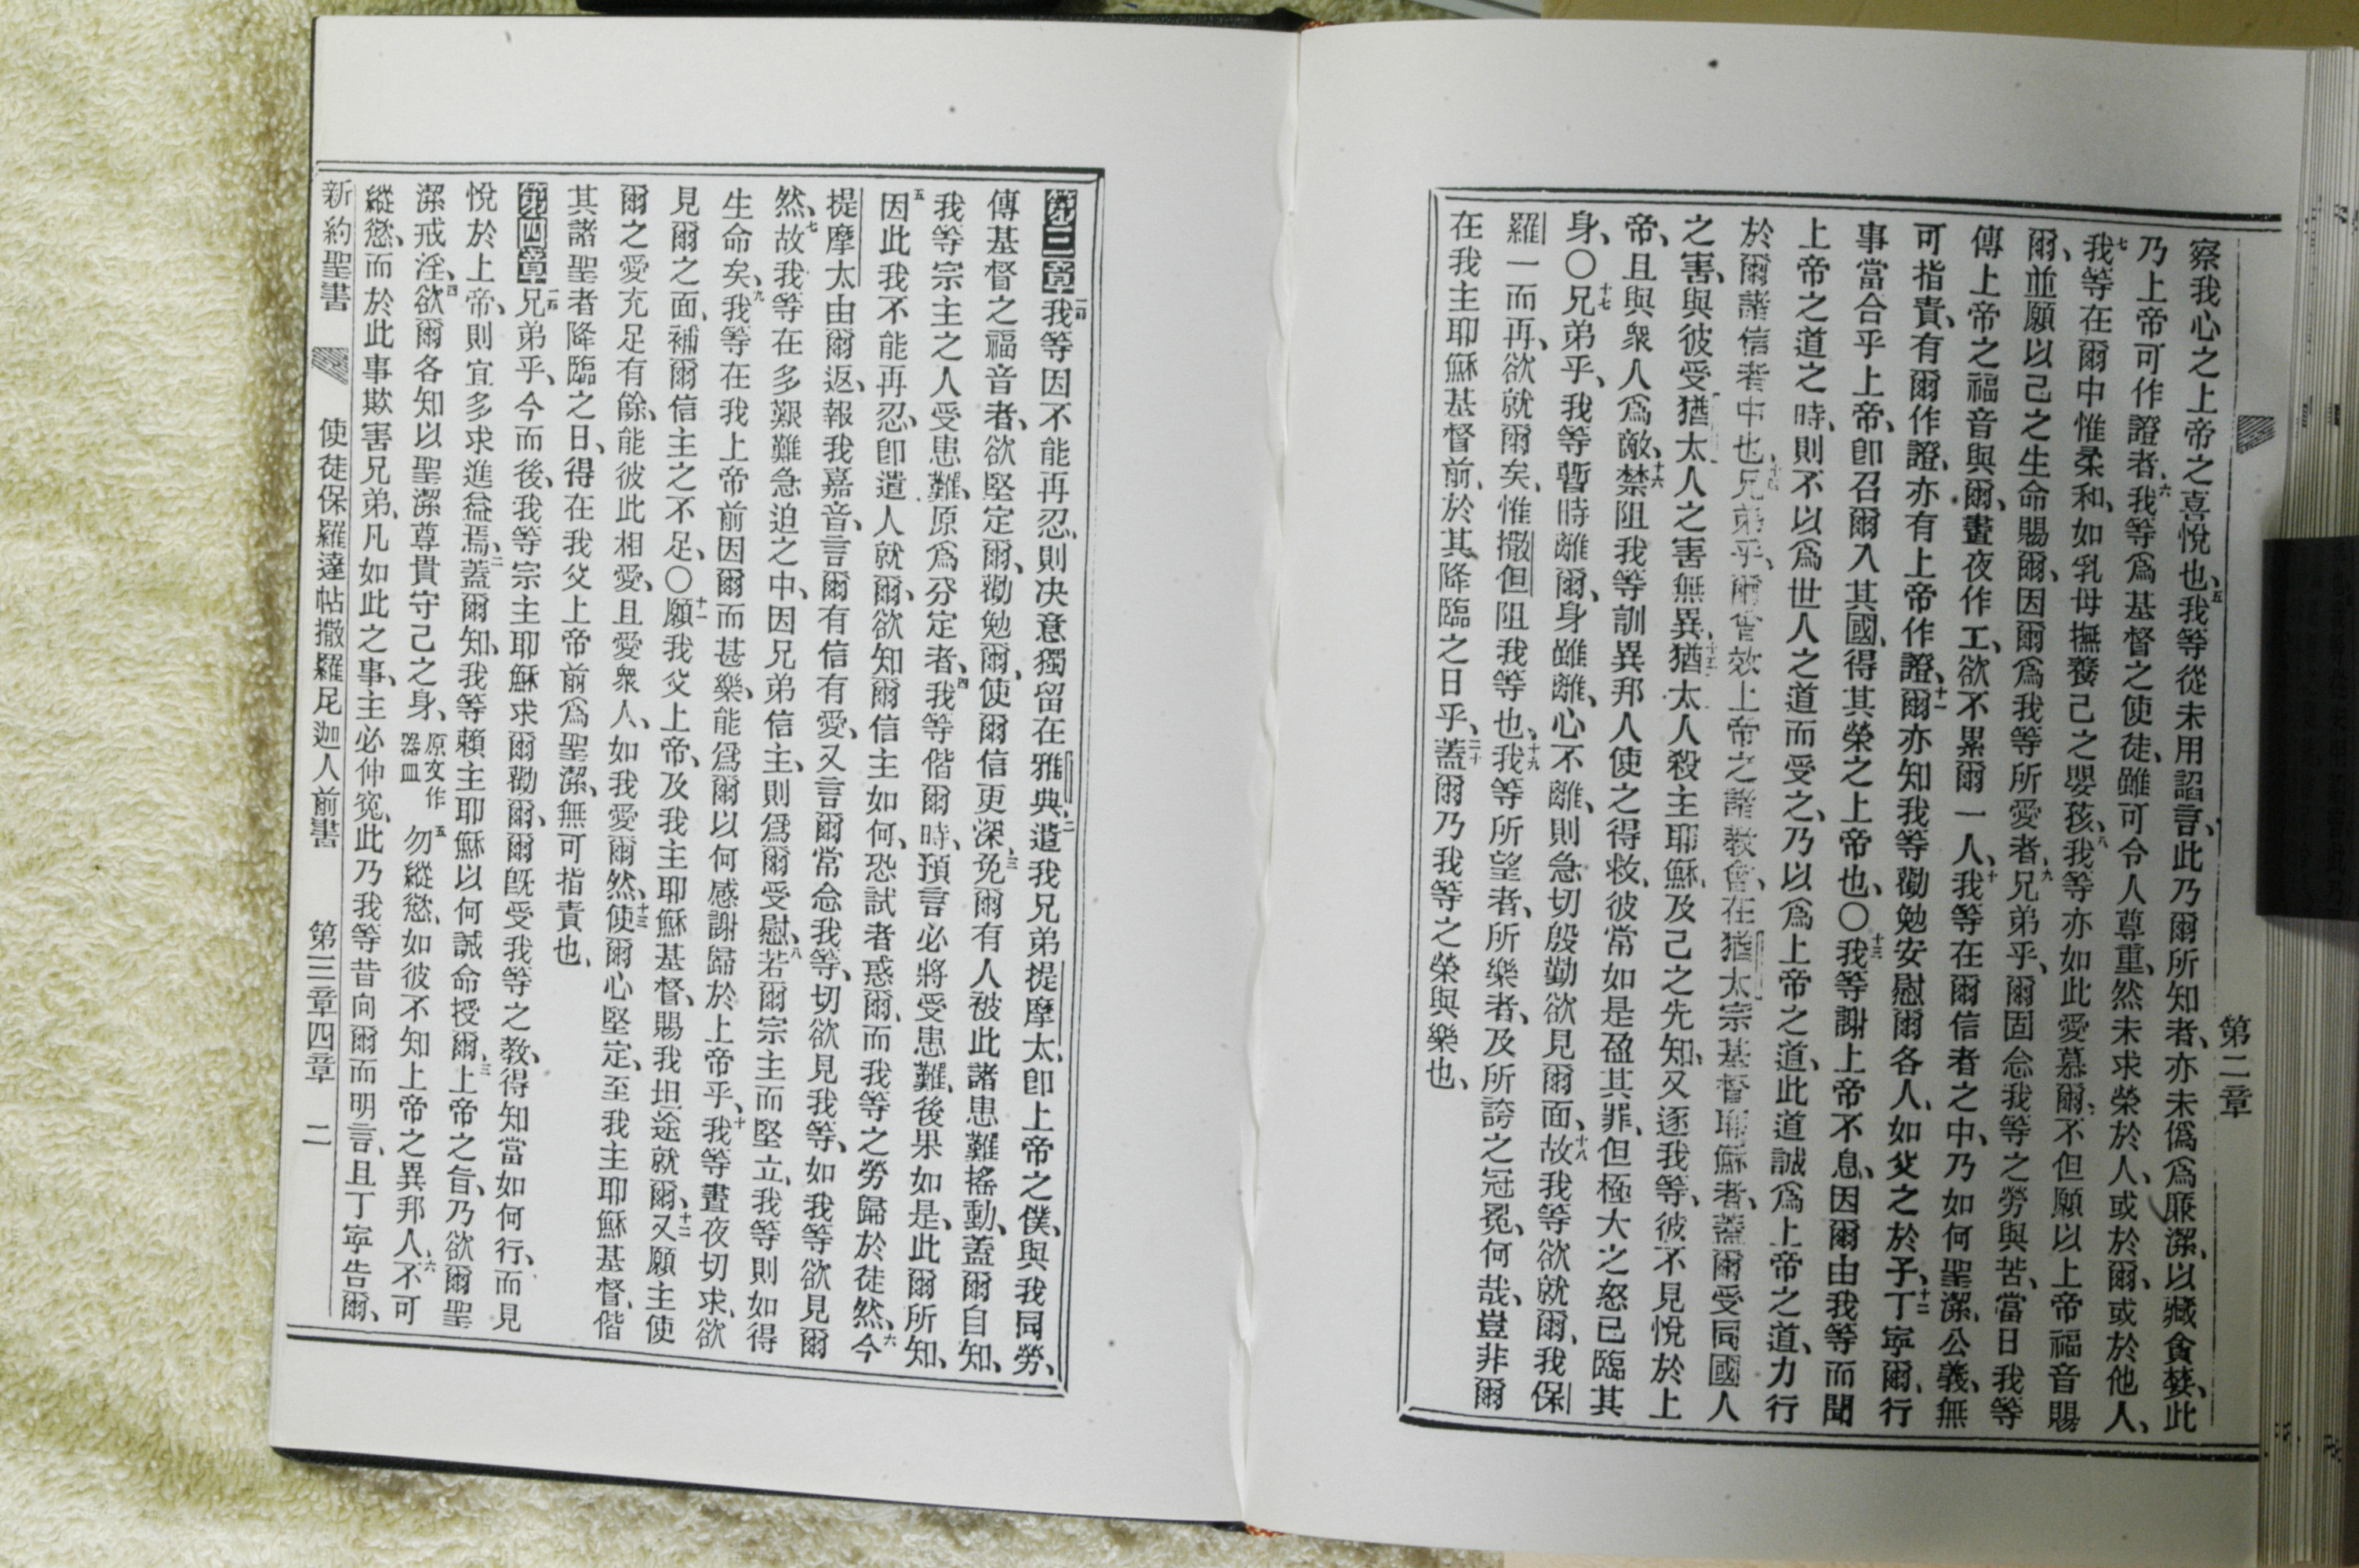 第二章
察我心之上帝之喜悅也、五我等從未用諂言、此乃爾所知者、亦未僞爲廉潔、以藏貪婪、此
乃上帝可作證者、六我等爲基督之使徒、雖可令人尊重、然未求榮於人、或於爾、或於他人、
七我等在爾中惟柔和、如乳母撫養己之嬰孩、八我等亦如此愛慕爾、不但願以上帝福音賜
爾、並願以己之生命賜爾、因爾爲我等所愛者、九兄弟乎、爾固念我等之勞與苦、當日我等
傳上帝之福音與爾、晝夜作工、欲不累爾一人、十我等在爾信者之中、乃如何聖潔、公義、無
可指責、有爾作證、亦有上帝作證、十一爾亦知我等勸勉安慰爾各人、如父之於子、十二丁寧爾、行
事當合乎上帝、卽召爾入其國、得其榮之上帝也、〇十三我等謝上帝不息、因爾由我等而聞
上帝之道之時、則不以爲世人之道而受之、乃以爲上帝之道、此道誠爲上帝之道、力行
於爾諸信者中也、十四兄弟乎、爾曾效上帝之諸敎會、在猶太宗基督耶穌者、蓋爾受同國人
之害、與彼受猶太人之害無異、十五猶太人殺主耶穌、及己之先知、又逐我等、彼不見悅於上
帝、且與衆人爲敵、十六禁阻我等訓異邦人使之得救、彼常如是盈其罪、但極大之怒已臨其
身、〇十七兄弟乎、我等暫時離爾、身雖離、心不離、則急切殷勤欲見爾面、十八故我等欲就爾、我保
羅一而再、欲就爾矣、惟撒但阻我等也、十九我等所望者、所樂者、及所誇之冠冕、何哉、豈非爾
在我主耶穌基督前、於其降臨之日乎、二十蓋爾乃我等之榮與樂也、
第三章一節我等因不能再忍、則決意獨留在雅典、二遣我兄弟提摩太、卽上帝之僕、與我同勞、
傳基督之福音者、欲堅定爾、勸勉爾、使爾信更深、三免爾有人被此諸患難搖動、蓋爾自知、
我等宗主之人受患難、原爲分定者、四我等偕爾時、預言必將受患難、後果如是、此爾所知、
五因此我不能再忍、卽遣人就爾、欲知爾信主如何、恐試者惑爾、而我等之勞歸於徒然、六今
提摩太由爾返、報我嘉音、言爾有信有愛、又言爾常念我等、切欲見我等、如我等欲見爾
然、七故我等在多艱難急迫之中、因兄弟信主、則爲爾受慰、八若爾宗主而堅立、我等則如得
生命矣、九我等在我上帝前因爾而甚樂、能爲爾以何感謝歸於上帝乎、十我等晝夜切求、欲
見爾之面、補爾信主之不足、〇十一願我父上帝、及我主耶穌基督、賜我坦途就爾、十二又願主使
爾之愛充足有餘、能彼此相愛、且愛衆人、如我愛爾然、十三使爾心堅定、至我主耶穌基督、偕
其諸聖者降臨之日、得在我父上帝前爲聖潔、無可指責也、
第四章一節兄弟乎、今而後、我等宗主耶穌求爾勸爾、爾旣受我等之敎、得知當如何行、而見
悅於上帝、則宜多求進益焉、二蓋爾知、我等賴主耶穌以何誡命授爾、三上帝之旨、乃欲爾聖
潔戒淫、四欲爾各知以聖潔尊貴守己之身、原文作器皿五勿縱慾、如彼不知上帝之異邦人、六不可
縱慾、而於此事欺害兄弟、凡如此之事、主必伸寃、此乃我等昔向爾而明言、且丁寧告爾、
新約聖書 使徒保羅達帖撒羅尼迦人前書 第三章四章 二